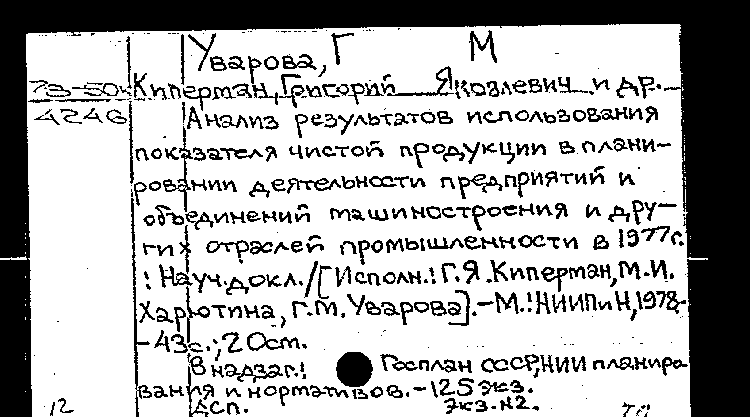 Уварова, Г М
Киперман, Григорий Яковлевич и др.
4246 Анализ результатов использования
показателя чистой продукции в плани-
ровании деятельности предприятий и
объединений машиностроения и дру-
гих отраслей промышленности в 1977г.
: Науч.докл./[Исполн.: Г.Я.Киперман, М.И.
Харютина, Г.М.Уварова].-М.:НИИПиН,1978.
-43с.; 20см.
В надзаг.: Госплан СССР, НИИ планиро
вания и нормативов.-125 экз.
12 ДСП. Экз.N2.